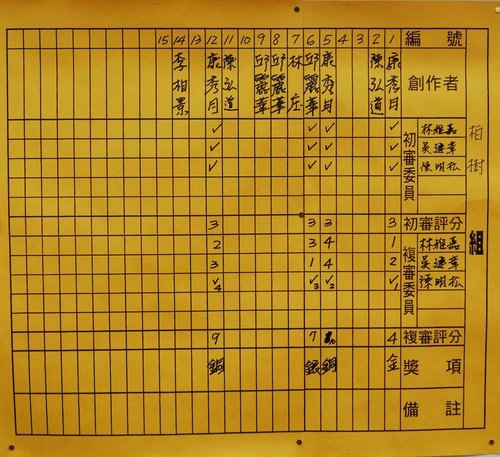 柏樹組
編號 1 2 3 4 5 6 7 8 9 10 11 12 13 14 15
創作者
康秀月
陳弘道
康秀月
邱麗華
林庄
邱麗華
邱麗華
陳弘道
康秀月
李相景
初審委員
林雅嘉 ✓ ✓ ✓ ✓
✓ ✓ ✓ ✓
陳明松 ✓ ✓ ✓ ✓
初審評分 3 3 3 3
複審委員
林雅嘉 1 4 3 2
2 4 1 3
陳明松 ✓1 ✓2 ✓3 ✓4
複審評分 4 7 9
獎項 金 銅 銀 銅
備註